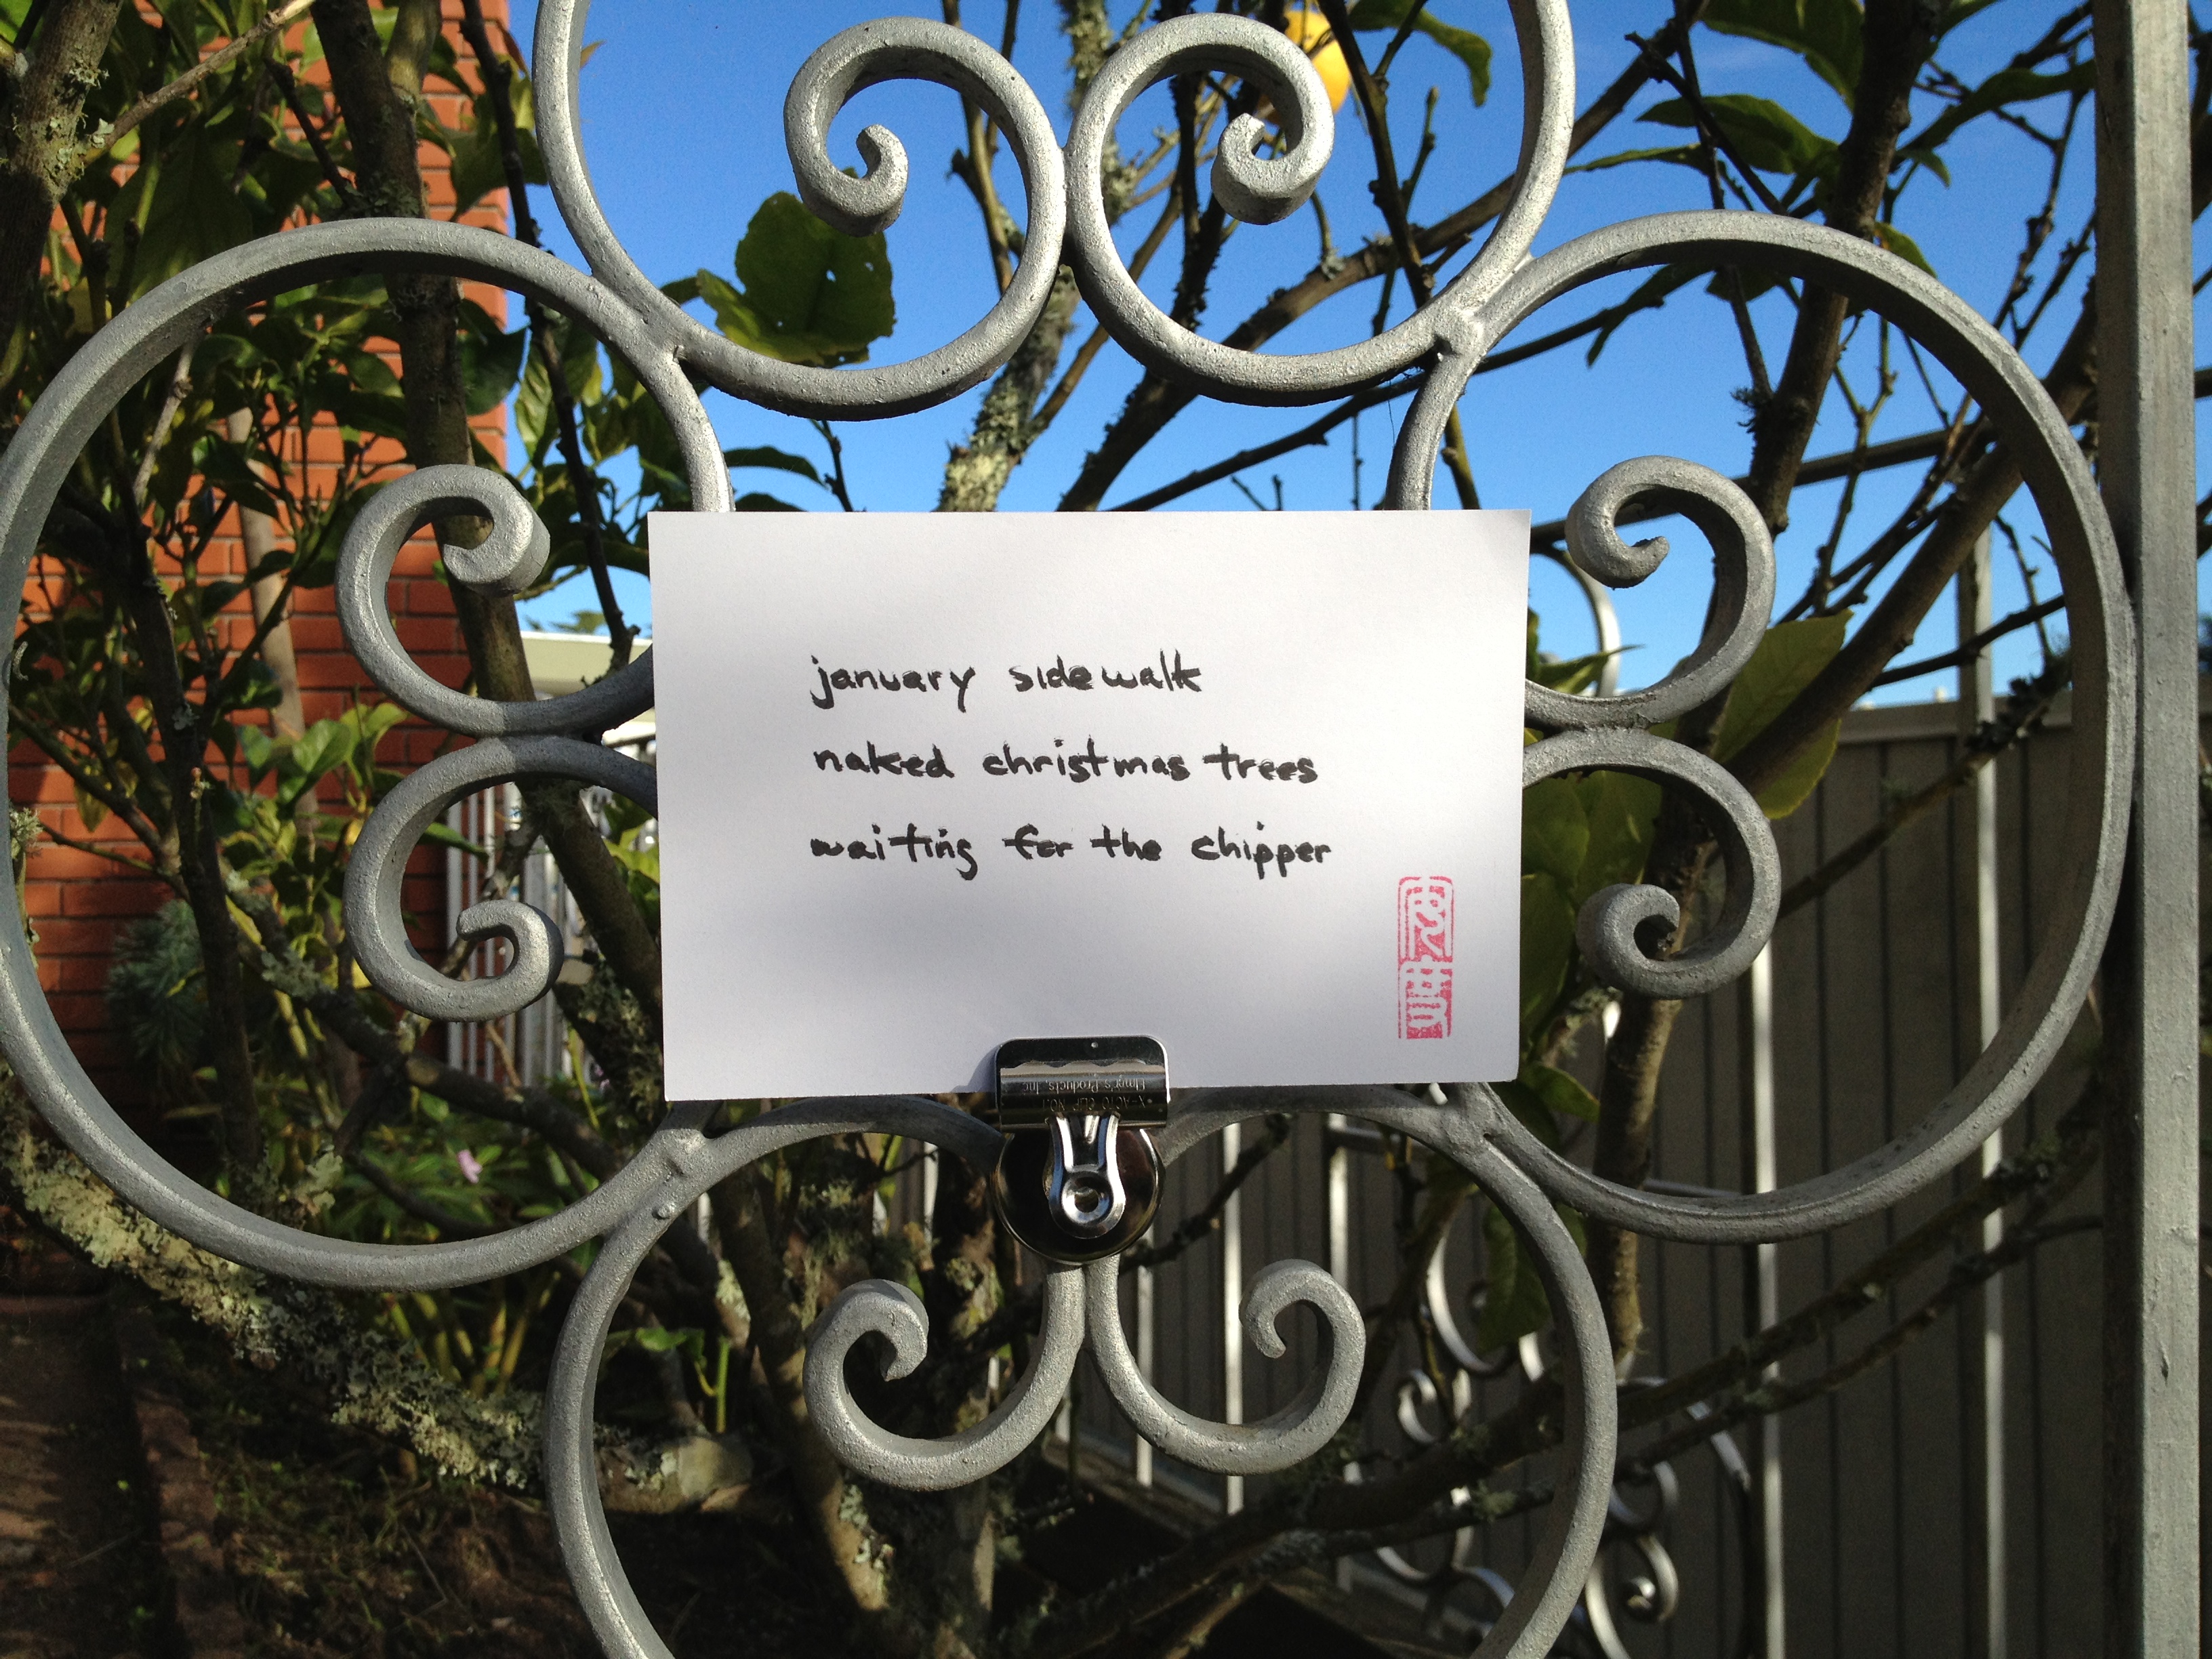 january sidewalk
naked christmas trees
waiting for the chipper
X-ACTO CLIP No.
Elmer's Products, Inc.